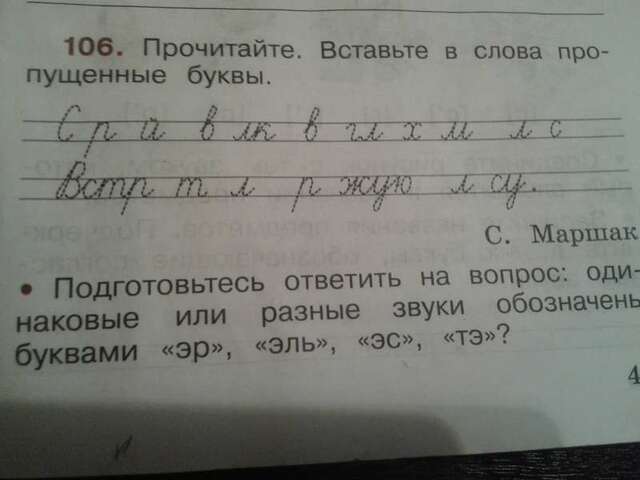 106. Прочитайте. Вставьте в слова про-
пущенные буквы.
С р а в лк в гл х м л с
Встр т л р жую л су.
С. Маршак
• Подготовьтесь ответить на вопрос: оди-
наковые или разные звуки обозначены
буквами «эр», «эль», «эс», «тэ»?
4